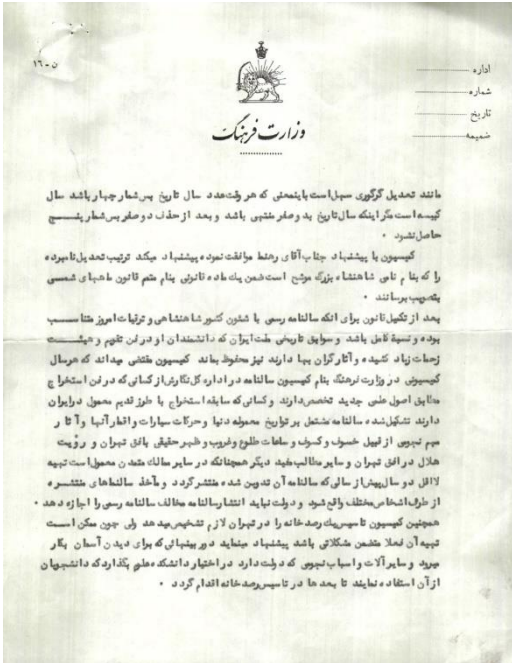 ن - ۱۶
اداره
شماره
تاریخ
ضمیمه
وزارت فرهنگ
مانند تعدیل گرگوری سهل است باینمعنی که هر وقت عدد سال تاریخ بس شمار چهار باشد سال
کبیسه است مگر اینکه سال تاریخ بدو صفر منتهی باشد و بعد از حذف دو صفر بس شمار پنج
حاصل نشود ۰
کمیسیون با پیشنهاد جناب آقای رهنما موافقت نموده پیشنهاد میکند ترتیب تعدیل نامبرده
را که بنام نامی شاهنشاه بزرگ موشح است ضمن یك ماده قانونی بنام متمم قانون ماههای شمسی
بتصویب برسانند ۰
بعد از تکمیل قانون برای آنکه سالنامه رسمی با شئون کشور شاهنشاهی و ترقیات امروز متناسب
بوده و نسبة کامل باشد و سوابق تاریخی ملت ایران که دانشمندان او در فن تقویم و هیئت
زحمات زیاد کشیده و آثار گران بها دارند نیز محفوظ بماند کمیسیون مقتضی میداند که هر سال
کمیسیونی در وزارت فرهنگ بنام کمیسیون سالنامه در اداره کل نگارش از کسانی که در فن استخراج
مطابق اصول علمی جدید تخصص دارند و کسانی که سابقه استخراج با طرز تقدیم معمول در ایران
دارند تشکیل شده سالنامه مشتمل بر تواریخ معموله دنیا و حرکات سیارات و اقمار آنها و آثار
مهم نجومی از قبیل خسوف و کسوف و ساعات طلوع و غروب و ظهر حقیقی بافق تهران و رؤیت
هلال در افق تهران و سایر مطالب مفید دیگر همچنانکه در سایر ممالك متمدن معمول است تهیه
لااقل دو سال پیش از سالی که سالنامه آن تدوین شده منتشر گردد و مأخذ سالنماهای منتشره
از طرف اشخاص مختلف واقع شود و دولت نباید انتشار سالنامه مخالف سالنامه رسمی را اجازه دهد ۰
همچنین کمیسیون تاسیس یك رصد خانه را در تهران لازم تشخیص میدهد ولی چون ممکن است
تهیه آن فعلا متضمن مشکلاتی باشد پیشنهاد مینماید دوربینهائی که برای دیدن آسمان بکار
میرود و سایر آلات و اسباب نجومی که دولت دارد در اختیار دانشکده علوم بگذارد که دانشجویان
از آن استفاده نمایند تا بعد ها در تاسیس رصد خانه اقدام گردد ۰